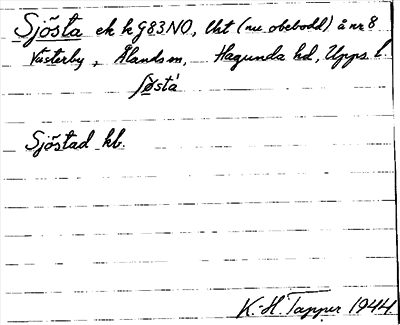 Sjösta ek k G83NO, lht (nu obebodd) å nr 8
Västerby, Ålands sn, Hagunda hd, Upps. l.
Sjöstad kb.
K.-H. Tapper 1944